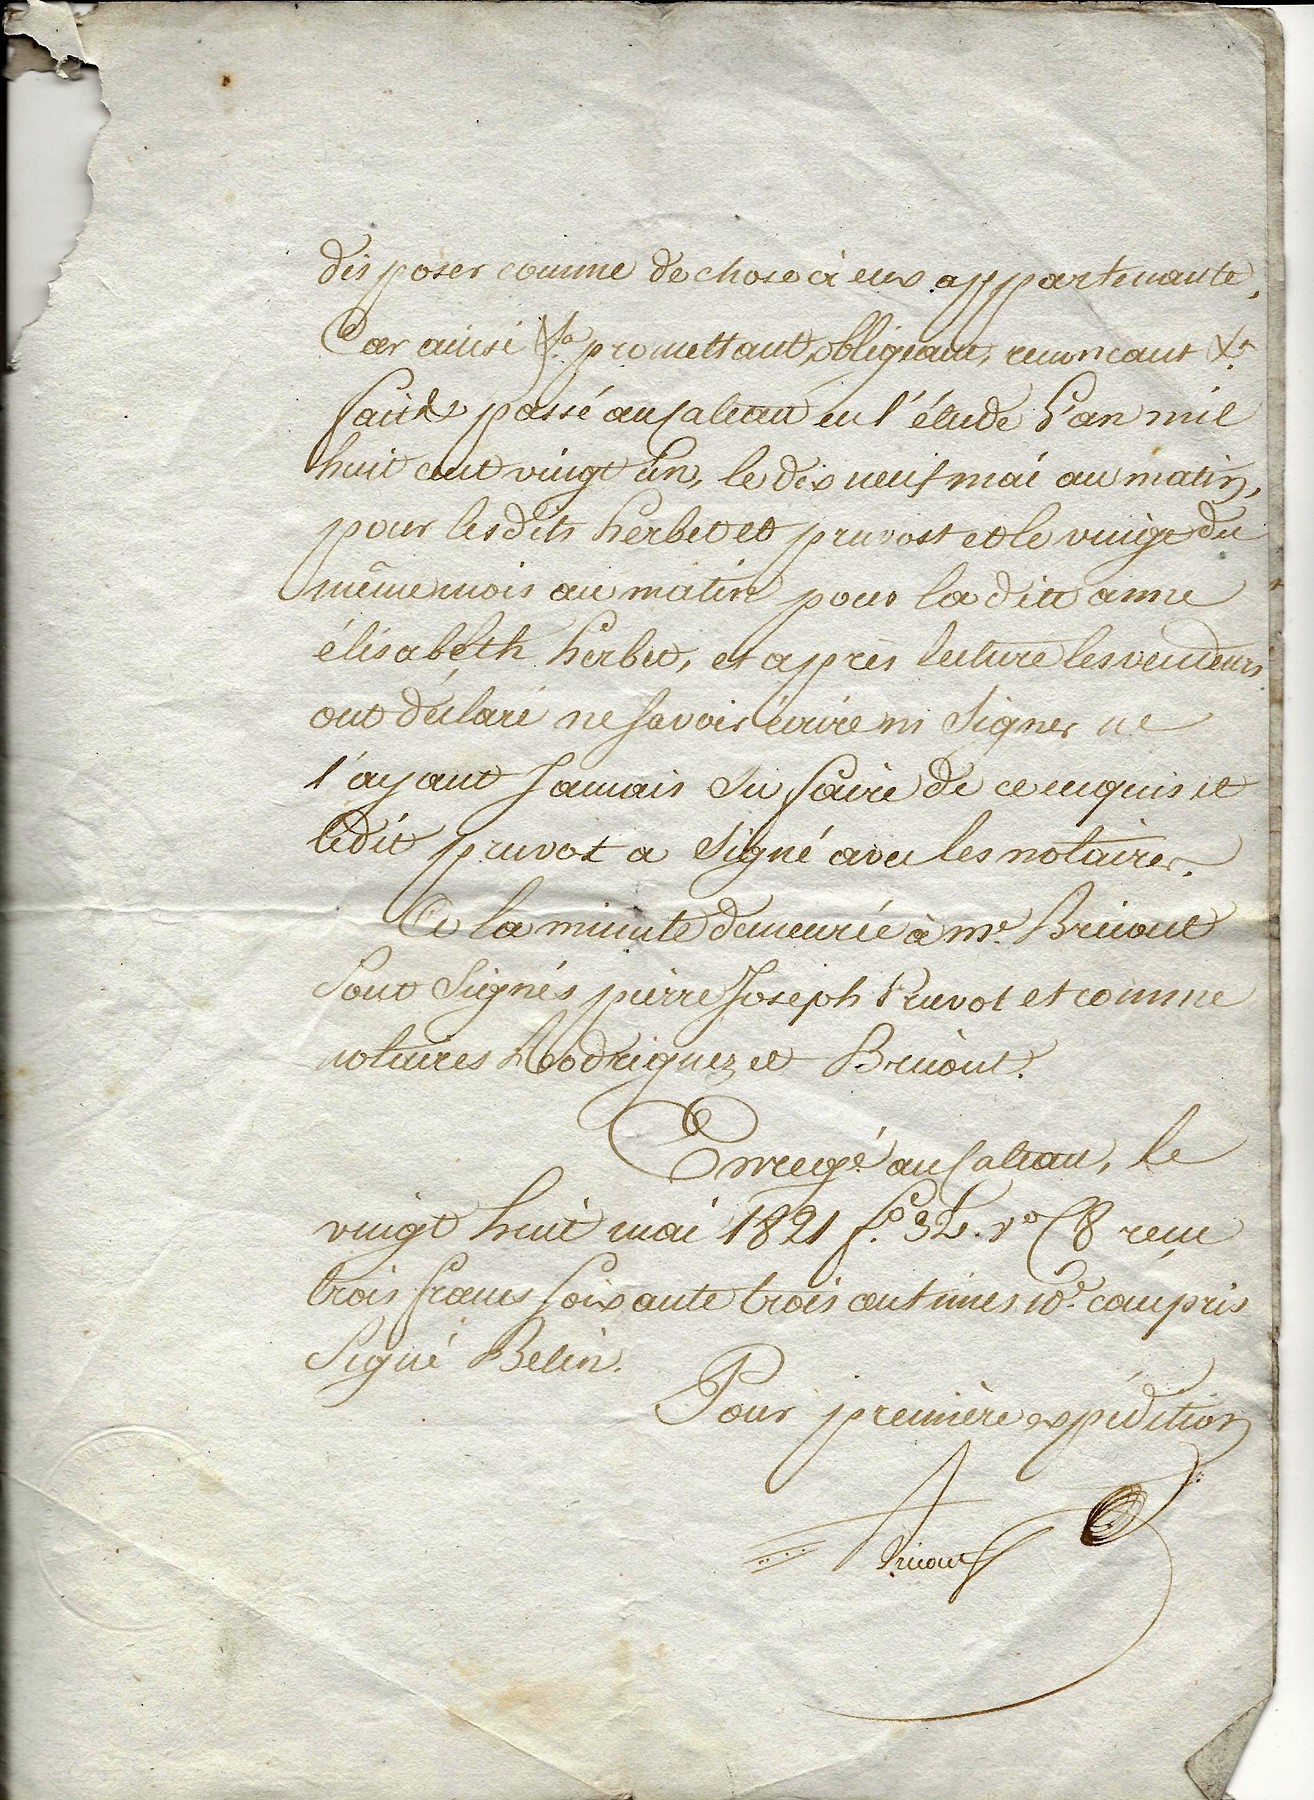 disposer comme de chose à eux appartenante,
Car ainsi &a promettant, obligeant, renoncant &a
fait & passé au Cateau en l'étude l'an mil
huit cent vingt un, le dix neuf mai au matin,
pour lesdits herbet et pruvost et le vingt du
même mois au matin pour la ditte anne
élisabeth herbet, et après lecture les vendeurs
ont déclaré ne Savoir écrire ni Signer ne
l'ayant Jamais Su faire de ce enquis et
ledit pruvot a Signé avec les notaires.
A la minute demeurée à me. Bricout
Sont Signés pierre Joseph Pruvot et comme
notaires Rodriguez et Bricout.
Enregé au Cateau, le
vingt huit mai 1821 fo. 32. vo C 8 reçu
trois francs Soixante trois centimes 10e. compris
Signé Belin.
Pour première expédition
Bricout